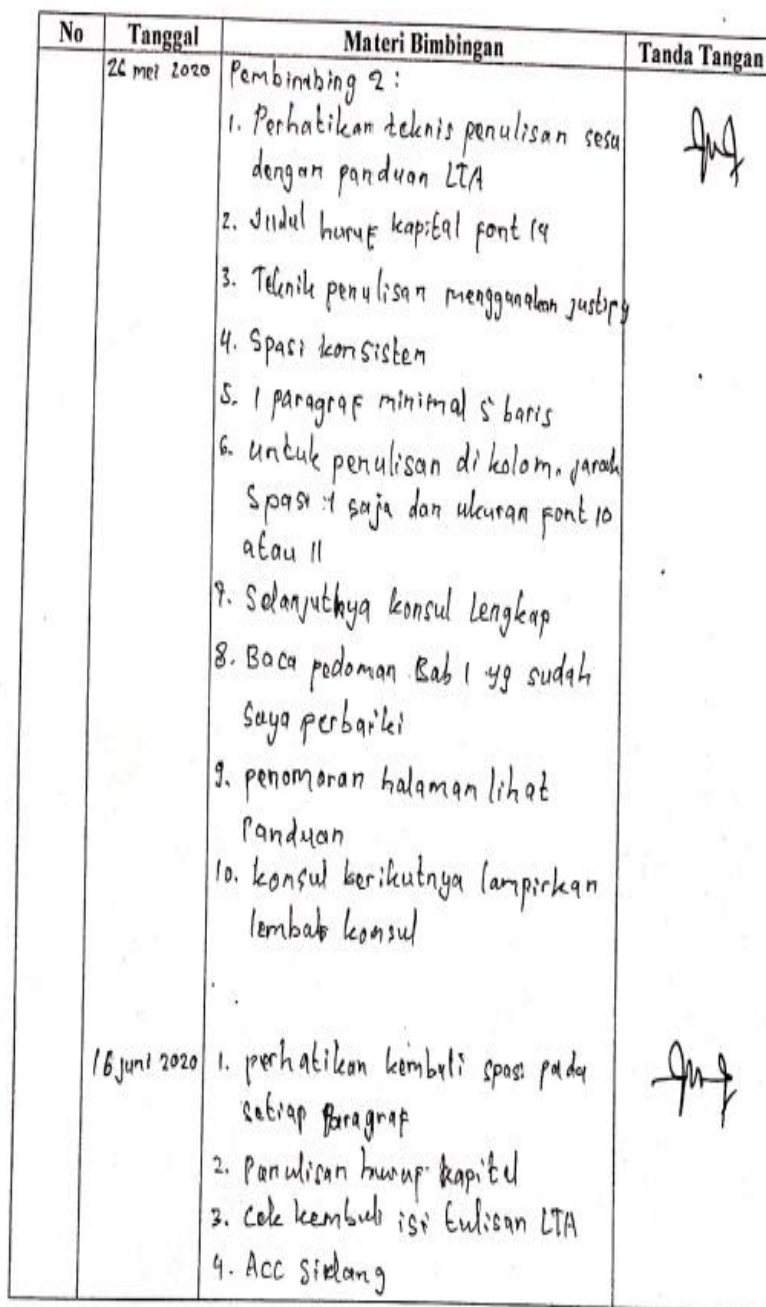 No Tanggal Materi Bimbingan Tanda Tangan
26 mei 2020 Pembimbing 2 :
1. Perhatikan teknis penulisan sesu
dengan panduan LTA
2. Judul huruf kapital font 14
3. Teknik penulisan menggunakan justify
4. Spasi konsisten
5. 1 paragraf minimal 5 baris
6. untuk penulisan di kolom, jarak
Spasi 1 saja dan ukuran font 10
atau 11
7. Selanjutnya konsul Lengkap
8. Baca pedoman Bab 1 yg sudah
Saya perbaiki
9. penomoran halaman lihat
Panduan
10. konsul berikutnya lampirkan
lembar konsul
16 juni 2020 1. perhatikan kembali spasi pada
setiap Paragraf
2. Penulisan huruf kapital
3. Cek kembali isi tulisan LTA
4. Acc Sidang